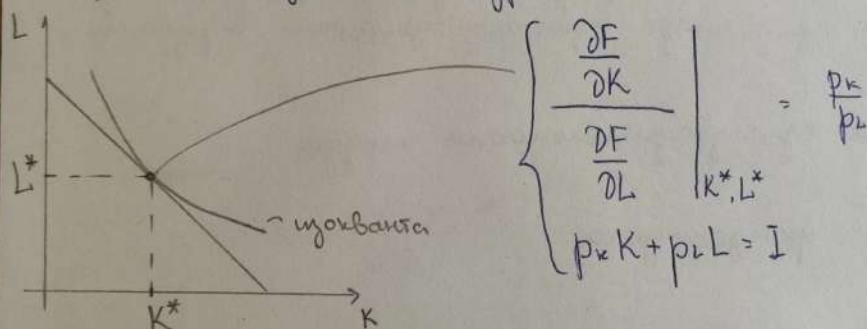 L
L*
K*
K
изокванта
∂F
∂K
∂F
∂L
K*, L*
= pₖ
p_L
pₖ K + p_L L = I